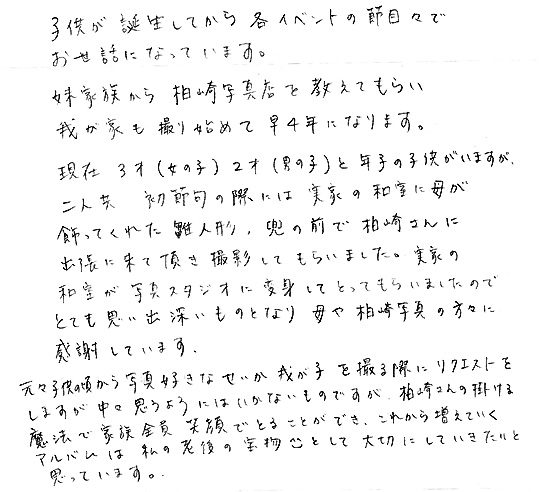 子供が誕生してから 各イベントの節目々で
お世話になっています。
妹家族から 柏崎写真店を教えてもらい
我が家も撮り始めて早4年になります。
現在 3才(女の子) 2才(男の子)と年子の子供がいますが、
二人共 初節句の際には実家の和室に母が
飾ってくれた雛人形、兜の前で柏崎さんに
出張に来て頂き撮影してもらいました。実家の
和室が写真スタジオに変身してとってもらいましたので
とても思い出深いものとなり 母や柏崎写真の方々に
感謝しています.
元々子供の頃から写真好きなせいか我が子を撮る際にリクエストを
しますが中々思うようにはいかないものですが、柏崎さんの掛ける
魔法で家族全員 笑顔でとることができ、これから増えていく
アルバムは 私の老後の宝物として大切にしていきたいと
思っています。